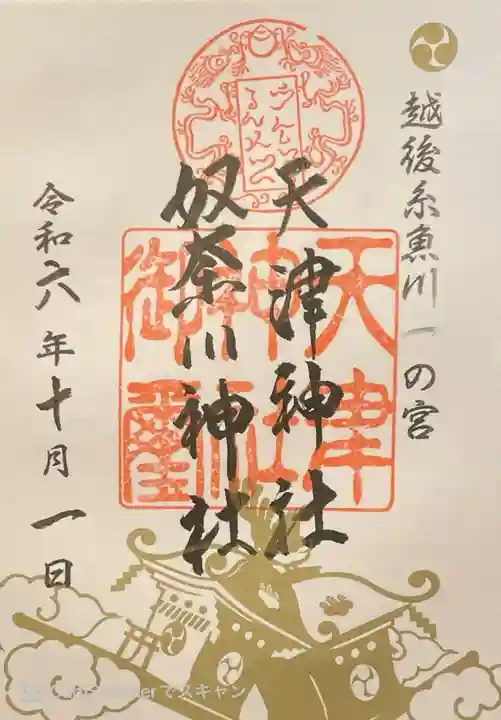 越後糸魚川一の宮
天津神社
奴奈川神社
天津
神社
御璽
令和六年十月一日
でスキャン